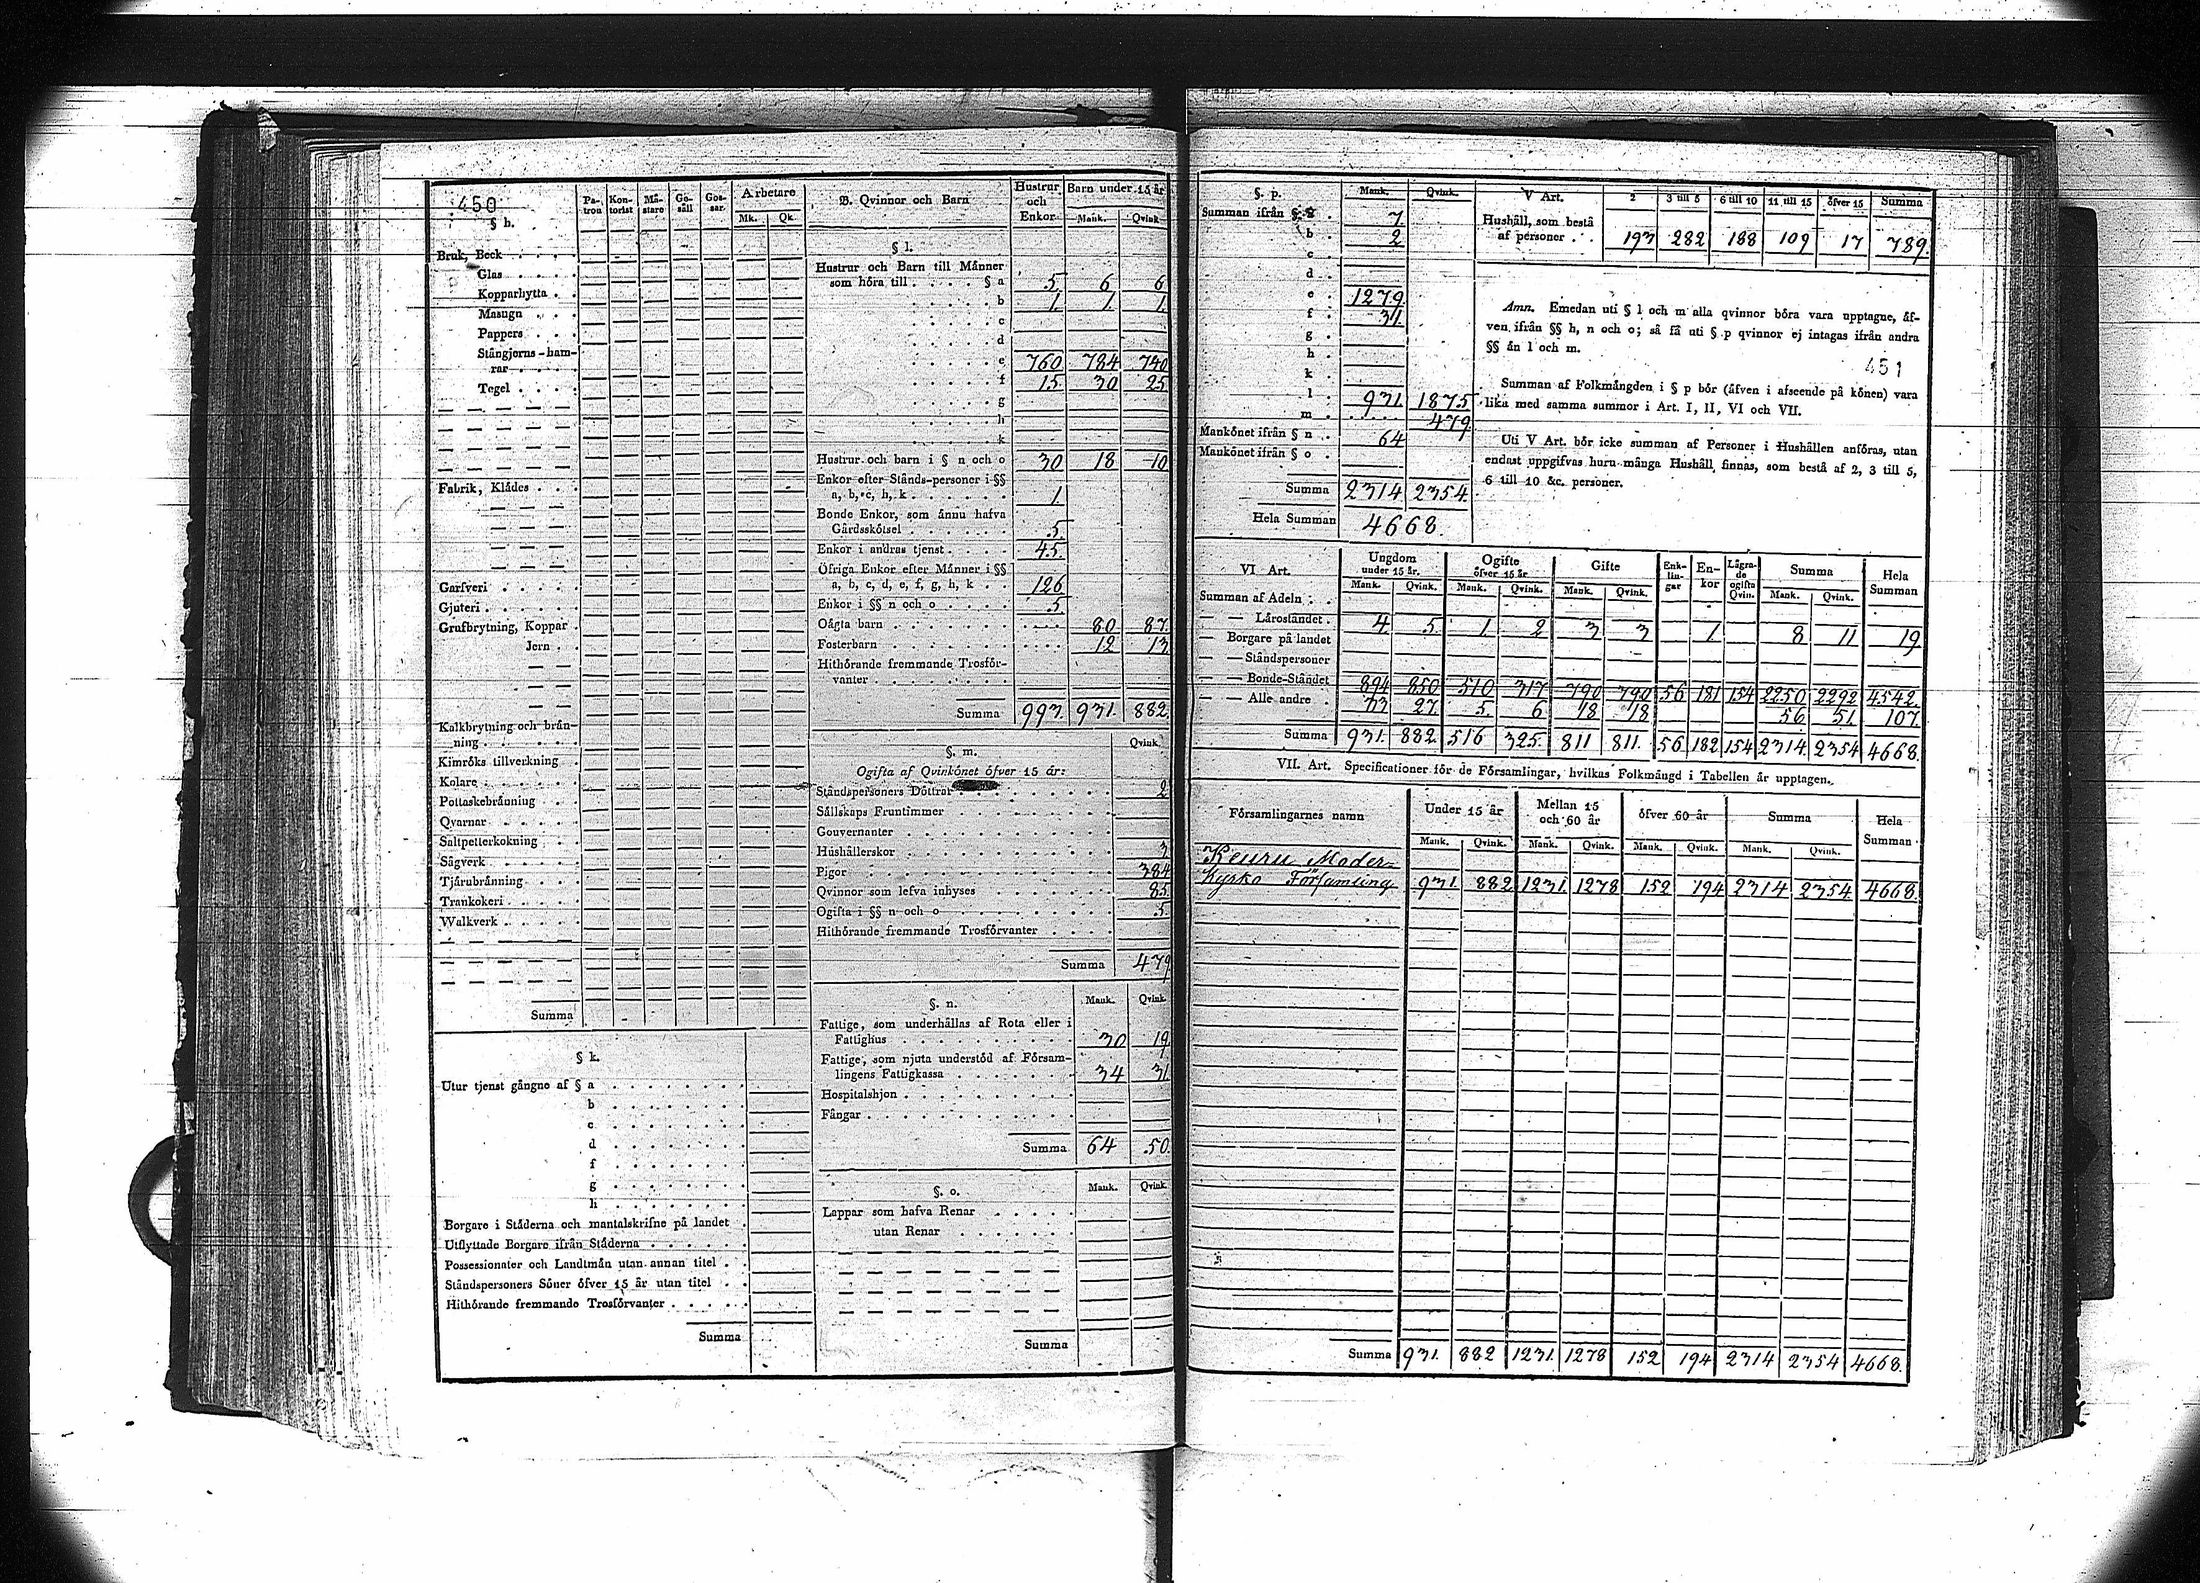 450
§ h.
Pa-tron Kon-torist Mä-stare Ge-säll Gos-sar Arbetare
Mk. Qk.
Bruk, Beck
Glas
Kopparhytta
Masugn
Pappers
Stångjerns-ham-
rar
Tegel
Fabrik, Klädes
Garfveri
Gjuteri
Grufbrytning, Koppar
Jern
Kalkbrytning och brän-
ning
Kimröks tillverkning
Kolare
Pottaskebränning
Qvarnar
Saltpetterkokning
Sågverk
Tjärubränning
Trankokeri
Walkverk
Summa
§ k.
Utur tjenst gångne af § a
b
c
d
f
g
h
Borgare i Städerna och mantalskrifne på landet
Utflyttade Borgare ifrån Städerna
Possessionater och Landtmän utan annan titel
Ståndspersoners Söner öfver 15 år utan titel
Hithörande fremmande Trosförvanter
Summa
B. Qvinnor och Barn Hustrur och Enkor Barn under 15 år
Mank. Qvink.
§ l.
Hustrur och Barn till Männer
som höra till § a 5 6 6
b 1 1 1
c
d
e 760 784 740
f 15 30 25
g
h
k
Hustrur och barn i § n och o 30 18 10
Enkor efter Stånds-personer i §§
a, b, c, h, k 1
Bonde Enkor, som ännu hafva
Gårdsskötsel 5
Enkor i andras tjenst 45
Öfriga Enkor efter Männer i §§
a, b, c, d, e, f, g, h, k 126
Enkor i §§ n och o 5
Oägta barn 80 87
Fosterbarn 12 13
Hithörande fremmande Trosför-
vanter
Summa 993 931 882
§. m. Qvink.
Ogifta af Qvinkönet öfver 15 år:
Ståndspersoners Döttrar 2
Sällskaps Fruntimmer
Gouvernanter
Hushållerskor 3
Pigor 384
Qvinnor som lefva inhyses 85
Ogifta i §§ n och o 5
Hithörande fremmande Trosförvanter
Summa 479
§. n. Mank. Qvink.
Fattige, som underhållas af Rota eller i
Fattighus 30 19
Fattige, som njuta understöd af Försam-
lingens Fattigkassa 34 31
Hospitalshjon
Fångar
Summa 64 50
§. o. Mank. Qvink.
Lappar som hafva Renar
utan Renar
Summa
§. p. Mank. Qvink.
Summan ifrån § a 7
b 2
c
d
e 1279
f 31
g
h
k
l 931 1875
m 479
Mankönet ifrån § n 64
Mankönet ifrån § o
Summa 2314 2354
Hela Summan 4668
V Art. 2 3 till 5 6 till 10 11 till 15 öfver 15 Summa
Hushåll, som bestå
af personer 193 282 188 109 17 789
Anm. Emedan uti § l och m alla qvinnor böra vara upptagne, äf-
ven ifrån §§ h, n och o; så få uti § p qvinnor ej intagas ifrån andra
§§ än l och m.
451
Summan af Folkmängden i § p bör (äfven i afseende på könen) vara
lika med samma summor i Art. I, II, VI och VII.
Uti V Art. bör icke summan af Personer i Hushållen anföras, utan
endast uppgifvas huru många Hushåll finnas, som bestå af 2, 3 till 5,
6 till 10 &c. personer.
VI Art. Ungdom under 15 år. Ogifte öfver 15 år Gifte Enk-lin-gar En-kor Lägra-de ogifta Qvin. Summa Hela Summan
Mank. Qvink. Mank. Qvink. Mank. Qvink. Mank. Qvink.
Summan af Adeln
— — Läroståndet 4 5 1 2 3 3 1 8 11 19
— Borgare på landet
— — Ståndspersoner
— — Bonde-Ståndet 894 850 510 317 790 790 56 181 154 2250 2292 4542
— — Alle andre 33 27 5 6 18 18 56 51 107
Summa 931 882 516 325 811 811 56 182 154 2314 2354 4668
VII. Art. Specificationer för de Församlingar, hvilkas Folkmängd i Tabellen är upptagen.
Församlingarnes namn Under 15 år Mellan 15 och 60 år öfver 60 år Summa Hela Summan
Mank. Qvink. Mank. Qvink. Mank. Qvink. Mank. Qvink.
Keuru Moder-
Kyrko Församling 931 882 1231 1278 152 194 2314 2354 4668
Summa 931 882 1231 1278 152 194 2314 2354 4668